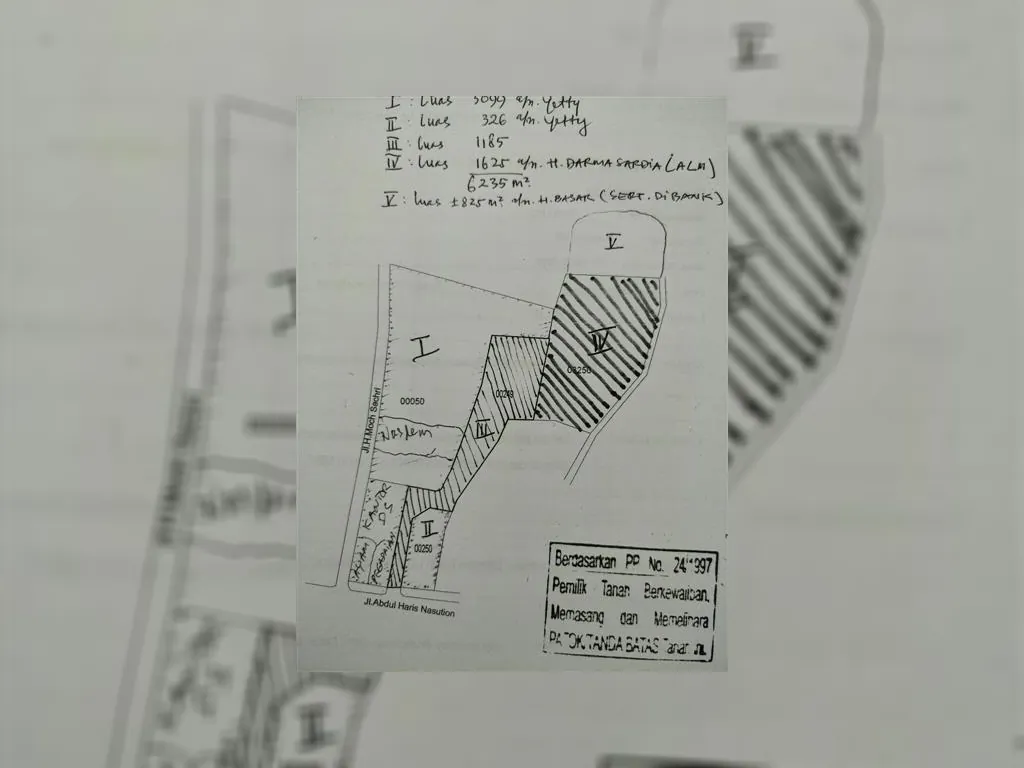 I : Luas 3099 a/n. Yetty
II : Luas 326 a/n. Yetty
III : Luas 1185
IV : Luas 1625 a/n. H. DARMA SARDIA (ALM)
6235 m²
V : Luas ±825 m² a/n. H. BASAR (SERT. DI BANK)
V
IV
I
03250
00050
Jl.H.Moch Sachri
III
KANTOR
II
00250
Jl.Abdul Haris Nasution
Berdasarkan PP No. 24/1997
Pemilik Tanah Berkewajiban,
Memasang dan Memelihara
PATOK TANDA BATAS Tanah